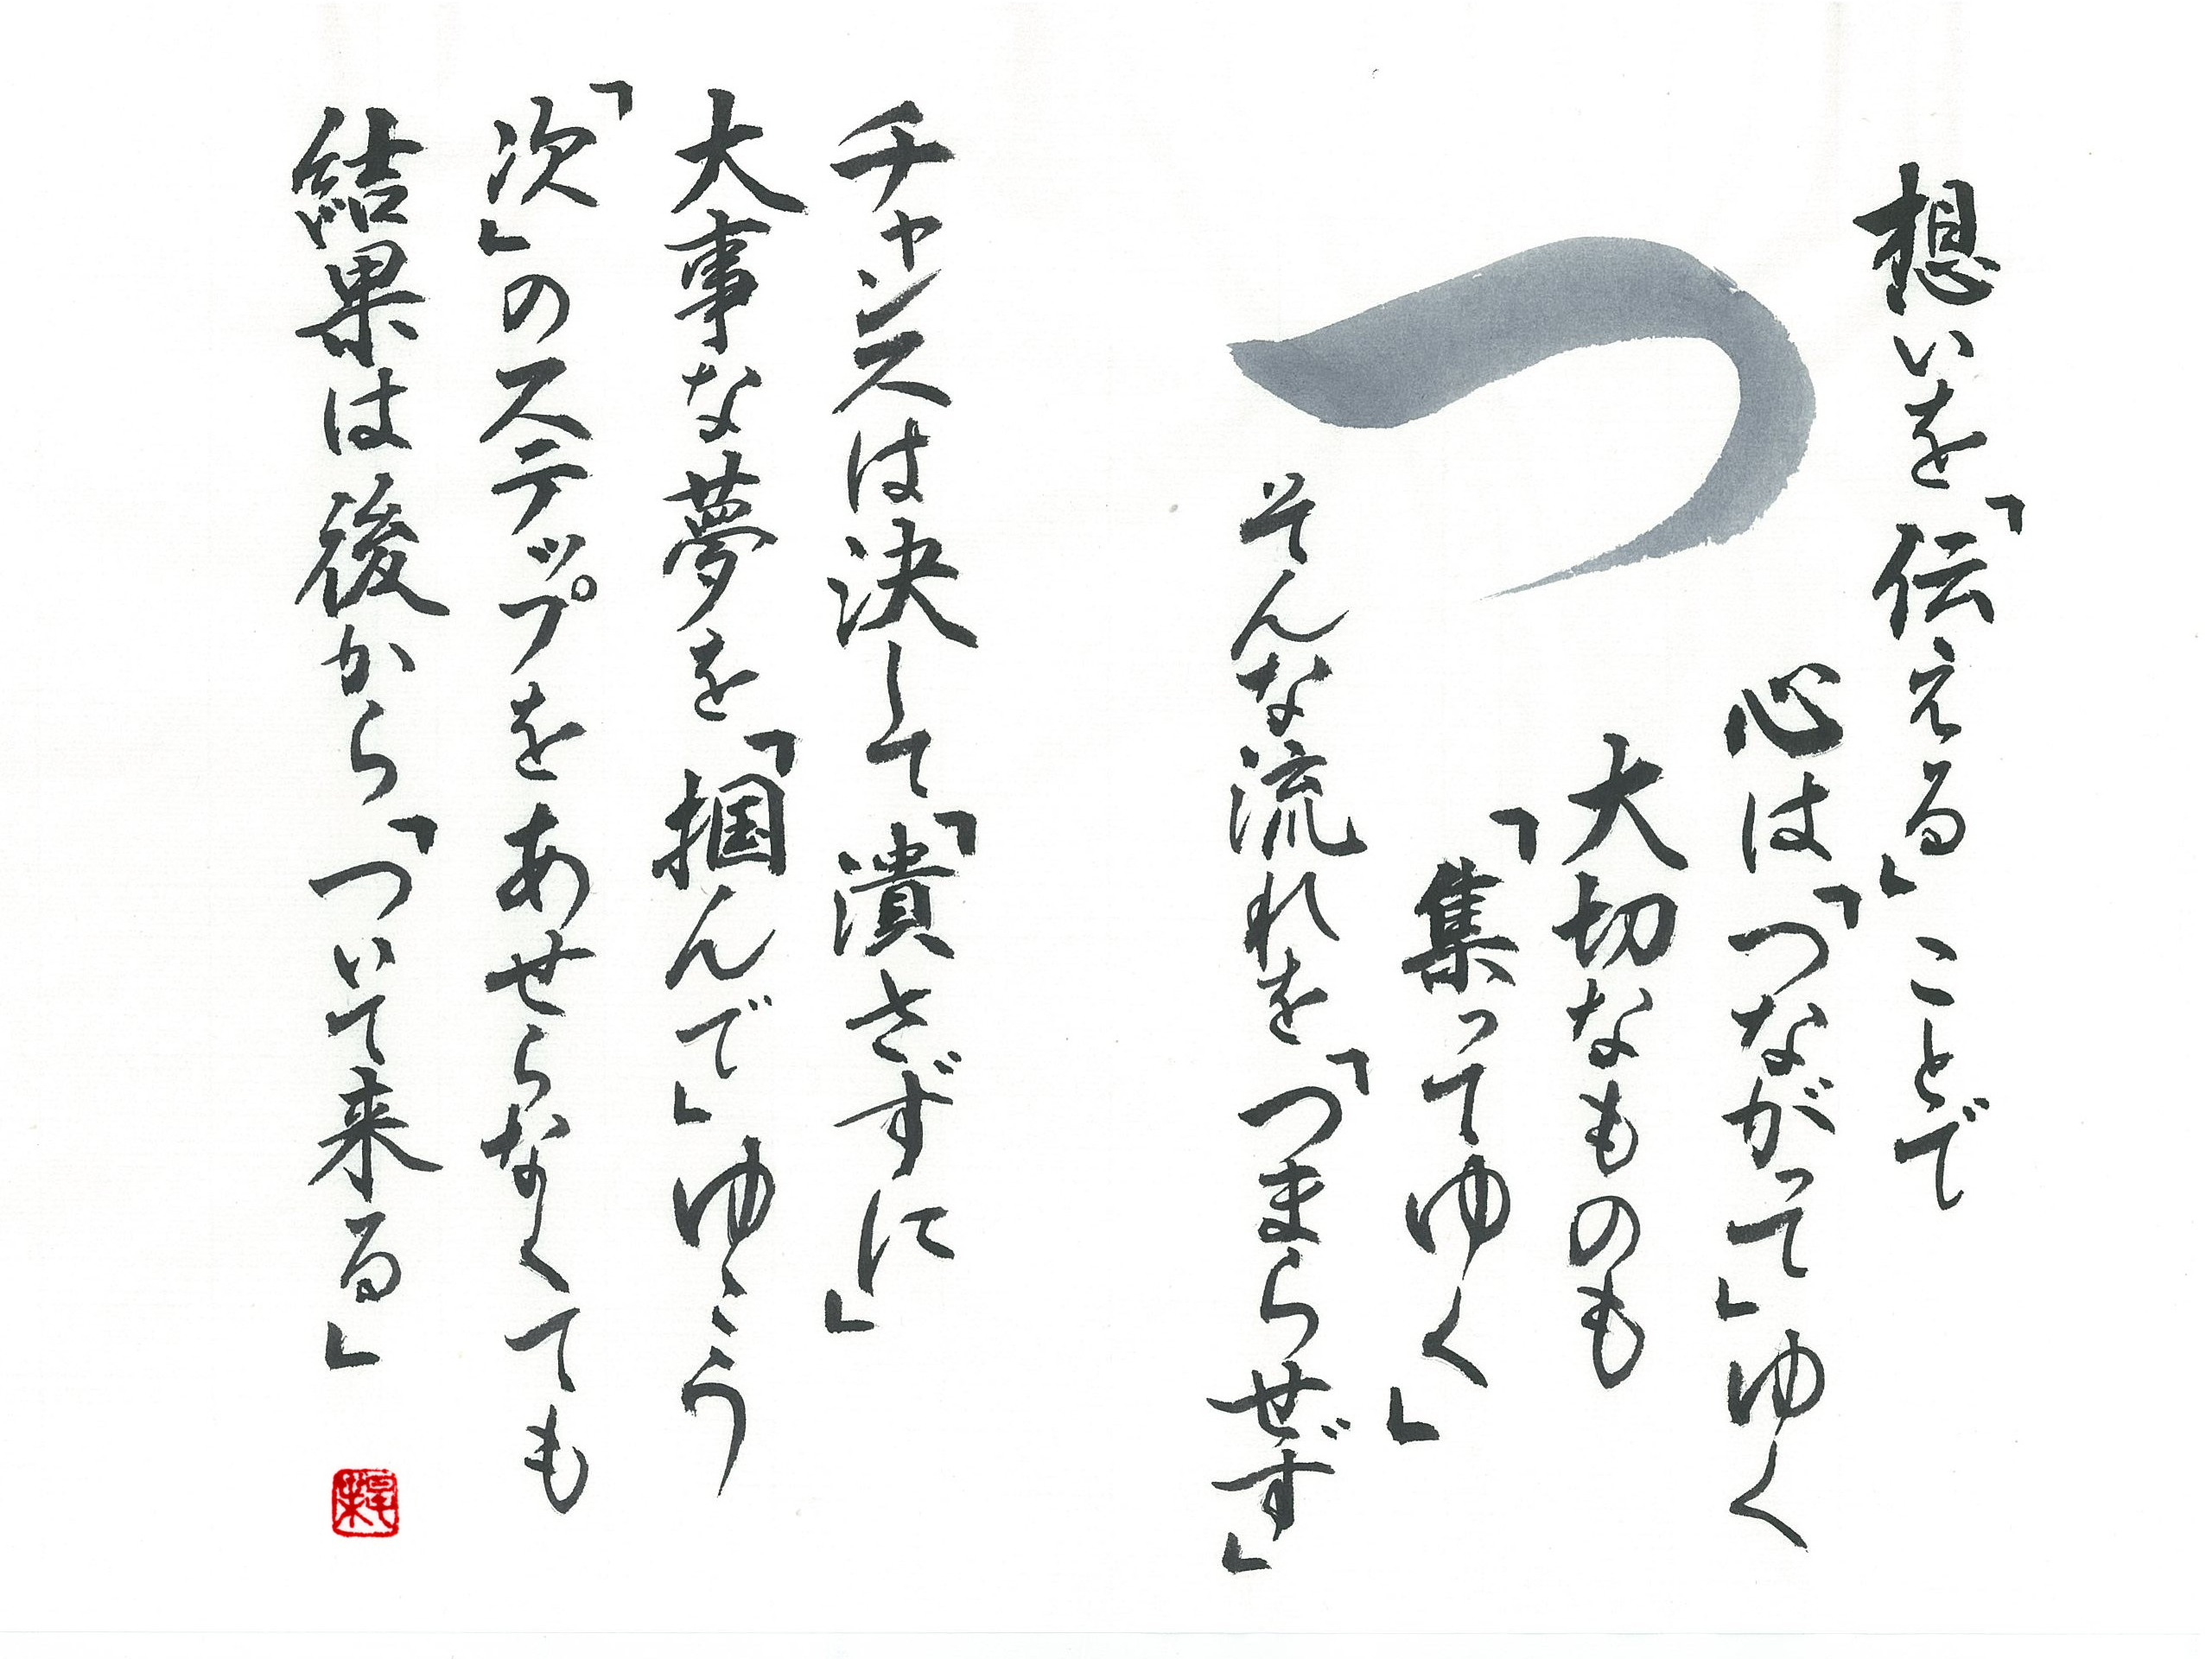 想いを「伝える」ことで
つ
心は「つながって」ゆく
大切なものも
「集ってゆく」
そんな流れを「つまらせず」
チャンスは決して「潰さずに」
大事な夢を「掴んで」ゆこう
「次」のステップをあせらなくても
結果は後から「ついて来る」